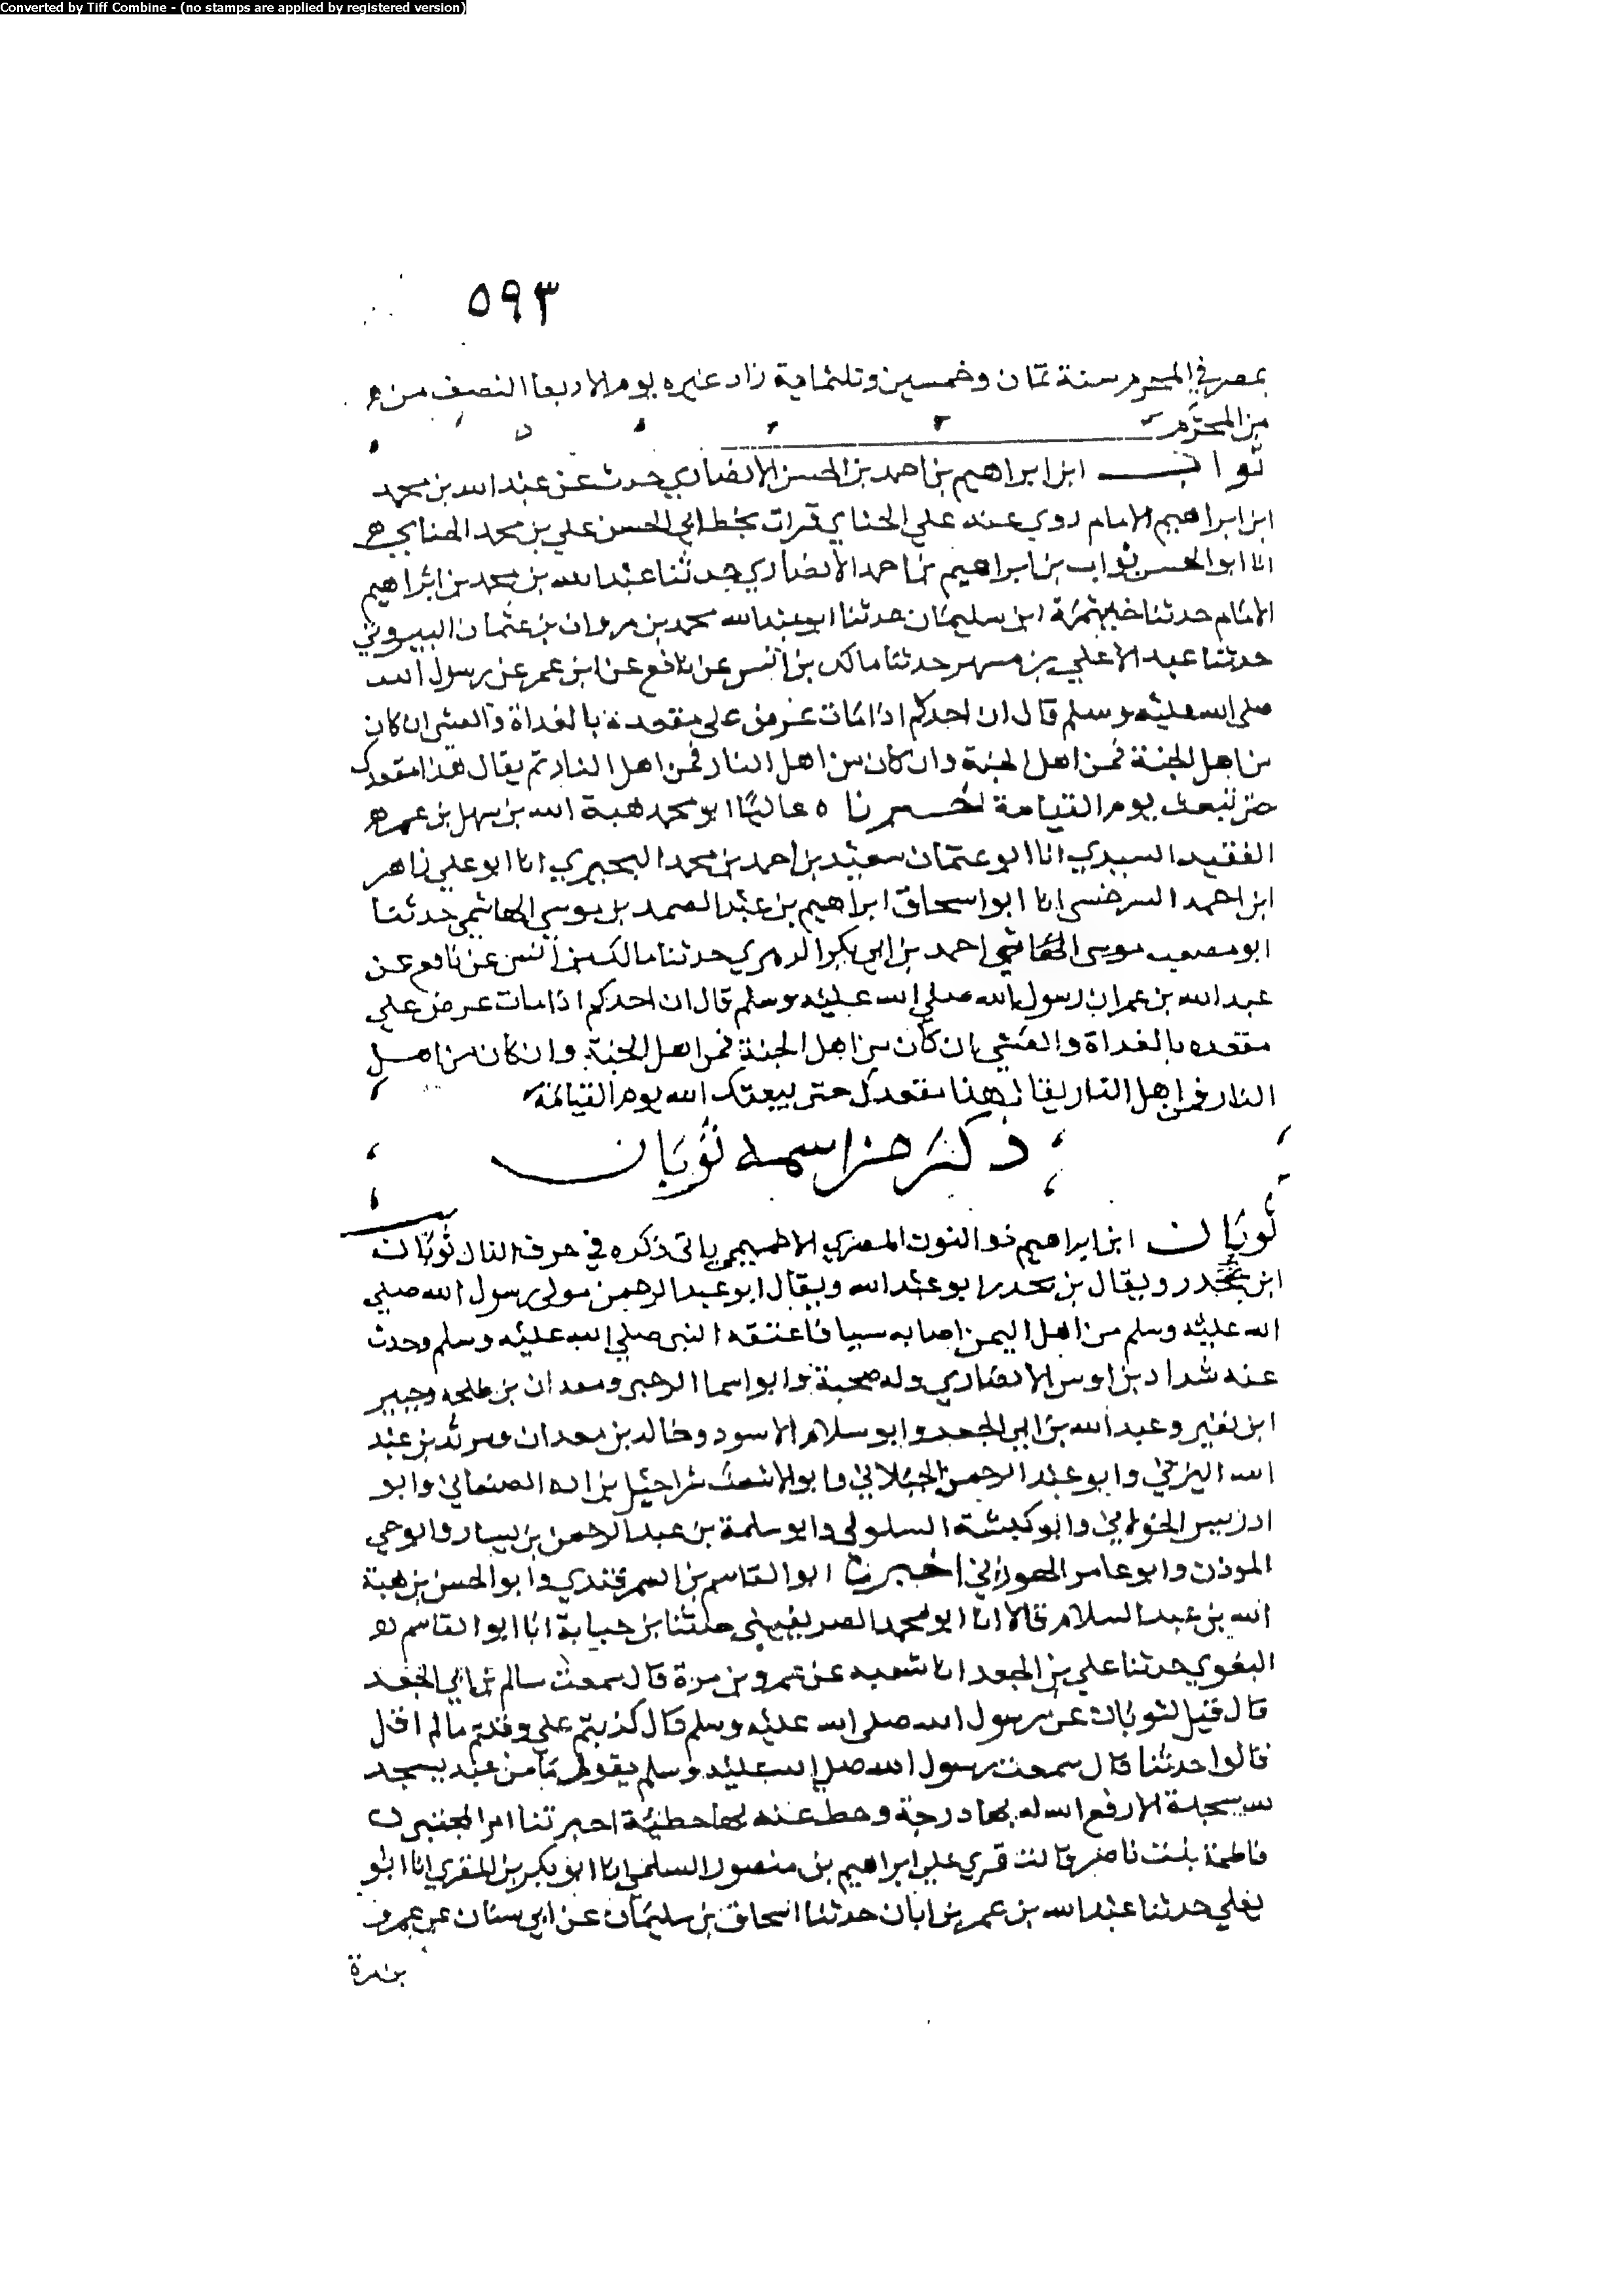 Converted by Tiff Combine - (no stamps are applied by registered version)
٥٩٣
بمصر في المحرم سنة ثمان وخمسين وثلثماية زاد غيره يوم الاربعا النصف من
من المحرم
ثواب ابن ابراهيم بن احمد بن الحسن الانصاري حدث عن عبد الله بن محمد
ابن ابراهيم الامام روي عنه علي الحناي قرات بخط ابي الحسن علي بن محمد الحناي
انا ابو الحسن ثواب بن ابراهيم بن احمد الانصاري حدثنا عبد الله بن محمد بن ابراهيم
الامام حدثنا خيثمة ابن سليمان حدثنا ابو عبد الله محمد بن مروان بن عثمان البيروتي
حدثنا عبد الاعلي بن مسهر حدثنا مالك بن انس عن نافع عن ابن عمر عن رسول الله
صلى الله عليه وسلم قال ان احدكم اذا مات عرض على مقعده بالغداة والعشي ان كان
من اهل الجنة فمن اهل الجنة وان كان من اهل النار فمن اهل النار ثم يقال هذا مقعدك
حتى تبعث يوم القيامة اخبرناه عاليا ابو محمد هبة الله بن سهل بن عمر
الفقيه السيدي انا ابو عثمان سعيد بن احمد بن محمد البحيري انا ابو علي زاهر
ابن احمد السرخسي انا ابو اسحاق ابراهيم بن عبد الصمد بن موسي الهاشمي حدثنا
ابو مصعب موسى الهاشمي احمد بن ابي بكر الزهري حدثنا مالك بن انس عن نافع عن
عبد الله بن عمر ان رسول الله صلي الله عليه وسلم قال ان احدكم اذا مات عرض علي
مقعده بالغداة والعشي ان كان من اهل الجنة فمن اهل الجنة وان كان من اهل
النار فمن اهل النار يقال هذا مقعدك حتى يبعثك الله يوم القيامة
ذكر من اسمه ثوبان
ثوبان ابن ابراهيم ذو النون المصري الاخميمي ياتى ذكره في حرف الذال ثوبان
ابن بجدد ويقال بن جحدر ابو عبد الله ويقال ابو عبد الرحمن مولى رسول الله صلي
الله عليه وسلم من اهل اليمن اصابه سبيا فاعتقه النبي صلي الله عليه وسلم وحدث
عنه شداد بن اوس الانصاري وله صحبة وابو اسما الرحبي ومعدان بن طلحة وجبير
ابن نفير وعبد الله بن ابي الجعد وابو سلام الاسود وخالد بن معدان ومرثد بن عبد
الله اليزني وابو عبد الرحمن الحبلاني وابو الاشعث شراحيل بن اده الصنعاني وابو
ادريس الخولاني وابو كبشة السلولي وابو سلمة بن عبد الرحمن بن يسار وابو حي
الموذن وابو عامر الهوزني اخبرنا ابو القاسم بن السمرقندي وابو الحسن بن هبة
الله بن عبد السلام قالا انا ابو محمد الصريفيني حدثنا بن حبابة انا ابو القاسم
البغوي حدثنا علي بن الجعد انا شعبة عن عمرو بن مرة قال سمعت سالم بن ابي الجعد
قال قيل لثوبان عن رسول الله صلى الله عليه وسلم قال كذبتم علي وقلتم ما لم اقل
قالوا حدثنا قال سمعت رسول الله صلي الله عليه وسلم يقول ما من عبد يسجد
سجدة الا رفع الله له بها درجة وحط عنه بها خطيئة اخبرتنا ام المجتبى
فاطمة بنت ناصر قالت قري علي ابراهيم بن منصور السلمي انا ابو بكر بن المقري انا ابو
يعلي حدثنا عبد الله بن عمر بن ابان حدثنا اسحاق بن سليمان عن ابي سنان عن عمرو
بن مرة